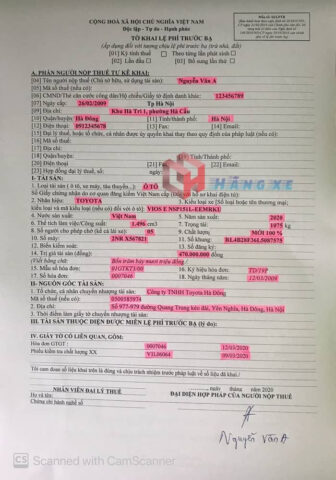 Mẫu số: 02/LPTB
CỘNG HOÀ XÃ HỘI CHỦ NGHĨA VIỆT NAM
Độc lập - Tự do - Hạnh phúc
TỜ KHAI LỆ PHÍ TRƯỚC BẠ
(Áp dụng đối với tài sản chịu lệ phí trước bạ (trừ nhà, đất)
[01] Kỳ tính thuế Theo từng lần phát sinh
[02] Lần đầu [03] Bổ sung lần thứ
A. PHẦN NGƯỜI NỘP THUẾ TỰ KÊ KHAI:
[04] Tên người nộp thuế (Chủ sở hữu, sử dụng tài sản): Nguyễn Văn A
[05] Mã số thuế (nếu có):
[06] CMND/Thẻ căn cước công dân/Hộ chiếu/Giấy tờ định danh khác: 123456789
[07] Ngày cấp: 26/02/2009 Tp Hà Nội
[09] Địa chỉ: Khu Hà Trì 1, phường Hà Cầu
[10] Quận/huyện: Hà Đông [11] Tỉnh/thành phố: Hà Nội
[12] Điện thoại: 0912345678 [13] Fax: [14] Email:
[15] Đại lý thuế, hoặc tổ chức, cá nhân được ủy quyền khai thay theo quy định của pháp luật (nếu có):
[16] Mã số thuế:
[17] Địa chỉ:
[18] Quận/huyện: [19] Tỉnh/Thành phố:
[20] Điện thoại [21] Fax [22] Email:
[23] Hợp đồng đại lý thuế, số: ngày
HÃNG XE
I- TÀI SẢN:
1. Loại tài sản ( ô tô, xe máy, tàu thuyền...): Ô TÔ
2. Nhãn hiệu: TOYOTA
VIOS E NSP151L-EEMRKU
4. Nước sản xuất: Việt Nam 5. Năm sản xuất: 2020
6. Thể tích làm việc/Công suất: 1.496 cm3 7. Trọng tải: 1975 kg
8. Số người cho phép chở (kể cả lái xe): 05 9. Chất lượng tài sản: MỚI 100 %
10. Số máy: 2NR X567821 11. Số khung: RL4B28F36L5087875
12. Biển kiểm soát: 13. Số đăng ký:
14. Trị giá tài sản (đồng): 470.000.000 đồng
(Viết bằng chữ) Bốn trăm bảy mươi triệu đồng./
15. Mẫu số hóa đơn: 01GTKT3/00 16. Ký hiệu hóa đơn: TD/19P
17. Số hóa đơn: 0007046
II- NGUỒN GỐC TÀI SẢN:
1. Tổ chức, cá nhân chuyển nhượng tài sản: Công ty TNHH Toyota Hà Đông
Mã số thuế (nếu có): 0500585974
3. Thời điểm làm giấy tờ chuyển nhượng tài sản:
III. TÀI SẢN THUỘC DIỆN ĐƯỢC MIỄN LỆ PHÍ TRƯỚC BẠ (lý do):
IV. GIẤY TỜ CÓ LIÊN QUAN, GỒM:
Hóa đơn GTGT : 0007046 12/03/2020
Phiếu kiểm tra chất lượng XX VIL06064 09/03/2020
Tôi cam đoan số liệu khai trên là đúng và chịu trách nhiệm trước pháp luật về số liệu đã khai./.
ngày tháng năm 2020
NHÂN VIÊN ĐẠI LÝ THUẾ
ĐẠI DIỆN HỢP PHÁP CỦA NGƯỜI NỘP THUẾ
Họ và tên:
Chứng chỉ hành nghề số:
A
Nguyễn Văn A
CS Scanned with CamScanner